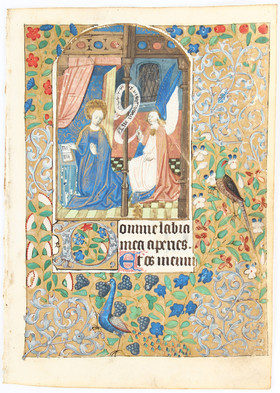 Domine labia
mea aperies.
Et os meum